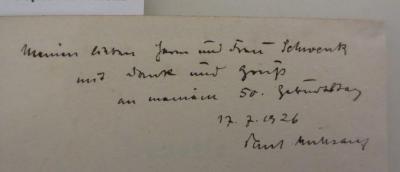 Meinen lieben Herrn und Frau Schwenk
mit Dank und Gruß
an meinem 50. Geburtstag
17.7.1926
Paul Mühsam